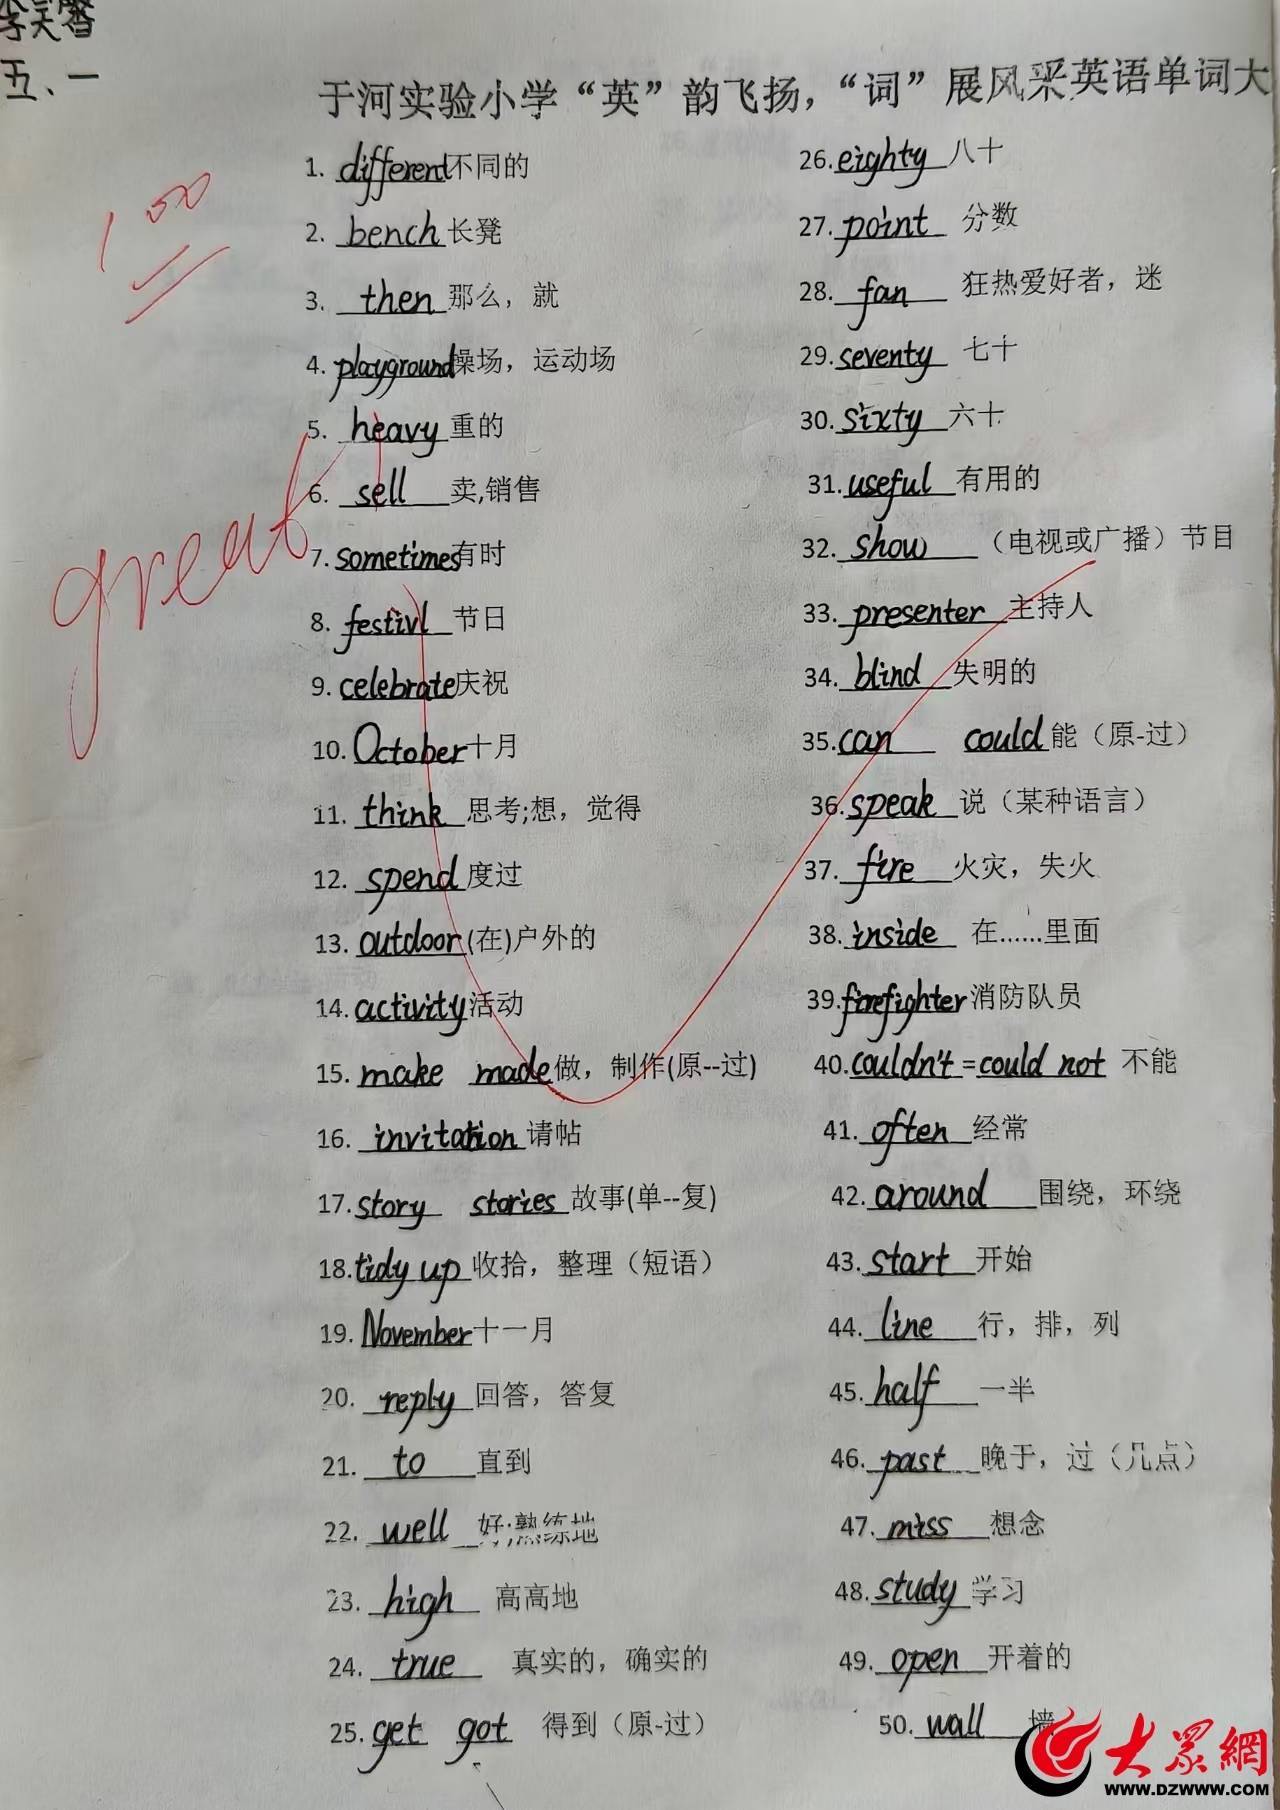 李昊馨
五、一
于河实验小学“英”韵飞扬，“词”展风采英语单词大
100
great!
1. different 不同的
2. bench 长凳
3. then 那么，就
4. playground 操场，运动场
5. heavy 重的
6. sell 卖,销售
7. sometimes 有时
8. festivl 节日
9. celebrate 庆祝
10. October 十月
11. think 思考;想，觉得
12. spend 度过
13. outdoor (在)户外的
14. activity 活动
15. make made 做，制作(原--过)
16. invitation 请帖
17. story stories 故事(单--复)
18. tidy up 收拾，整理（短语）
19. November 十一月
20. reply 回答，答复
21. to 直到
22. well 好;熟练地
23. high 高高地
24. true 真实的，确实的
25. get got 得到（原-过）
26. eighty 八十
27. point 分数
28. fan 狂热爱好者，迷
29. seventy 七十
30. sixty 六十
31. useful 有用的
32. show （电视或广播）节目
33. presenter 主持人
34. blind 失明的
35. can could 能（原-过）
36. speak 说（某种语言）
37. fire 火灾，失火
38. inside 在……里面
39. firefighter 消防队员
40. couldn't = could not 不能
41. often 经常
42. around 围绕，环绕
43. start 开始
44. line 行，排，列
45. half 一半
46. past 晚于，过（几点）
47. miss 想念
48. study 学习
49. open 开着的
50. wall 墙
大眾網
WWW.DZWWW.COM